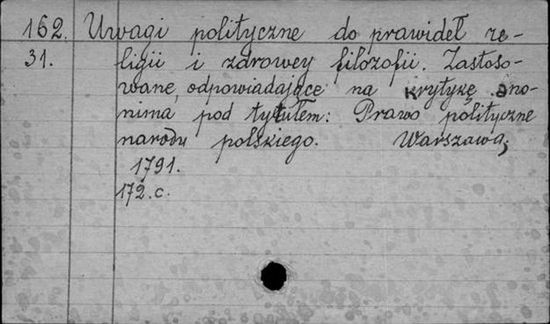 162. Uwagi polityczne do prawideł re-
31. ligii i zdrowey filozofii. Zastoso-
wane, odpowiadające na krytykę ano-
nima pod tytułem: Prawo polityczne
narodu polskiego. Warszawa,
1791.
172.c.